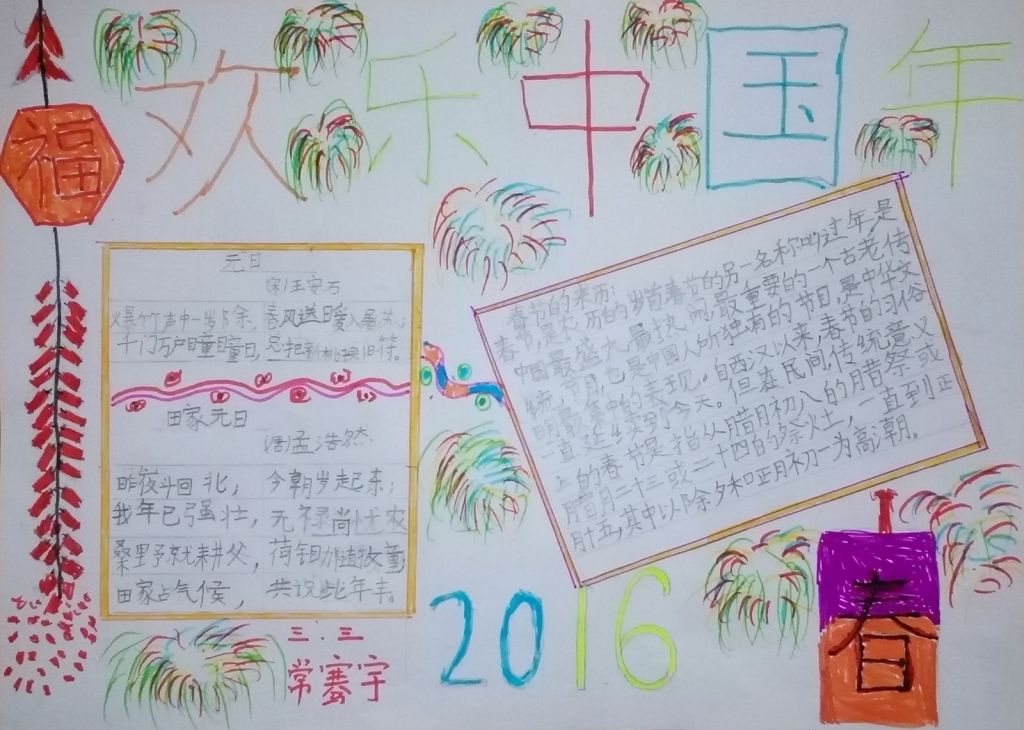 福
欢乐中国年
元日
宋/王安石
爆竹声中一岁除,春风送暖入屠苏;
千门万户曈曈日,总把新桃换旧符。
田家元日
唐孟浩然
昨夜斗回北,今朝岁起东;
我年已强壮,无禄尚忧农
桑野就耕父,荷锄随牧童
田家占气候,共说此年丰。
春节的来历:
春节,是农历的岁首春节的另一名称叫过年是
中国最盛大、最热闹、最重要的一个古老传
统节日,也是中国人所独有的节日,是中华文
明最集中的表现。自西汉以来,春节的习俗
一直延续到今天。但在民间,传统意义
上的春节是指从腊月初八的腊祭或
腊月二十三或二十四的祭灶,一直到正
月十五,其中以除夕和正月初一为高潮。
2016
三.三
常骞宇
春